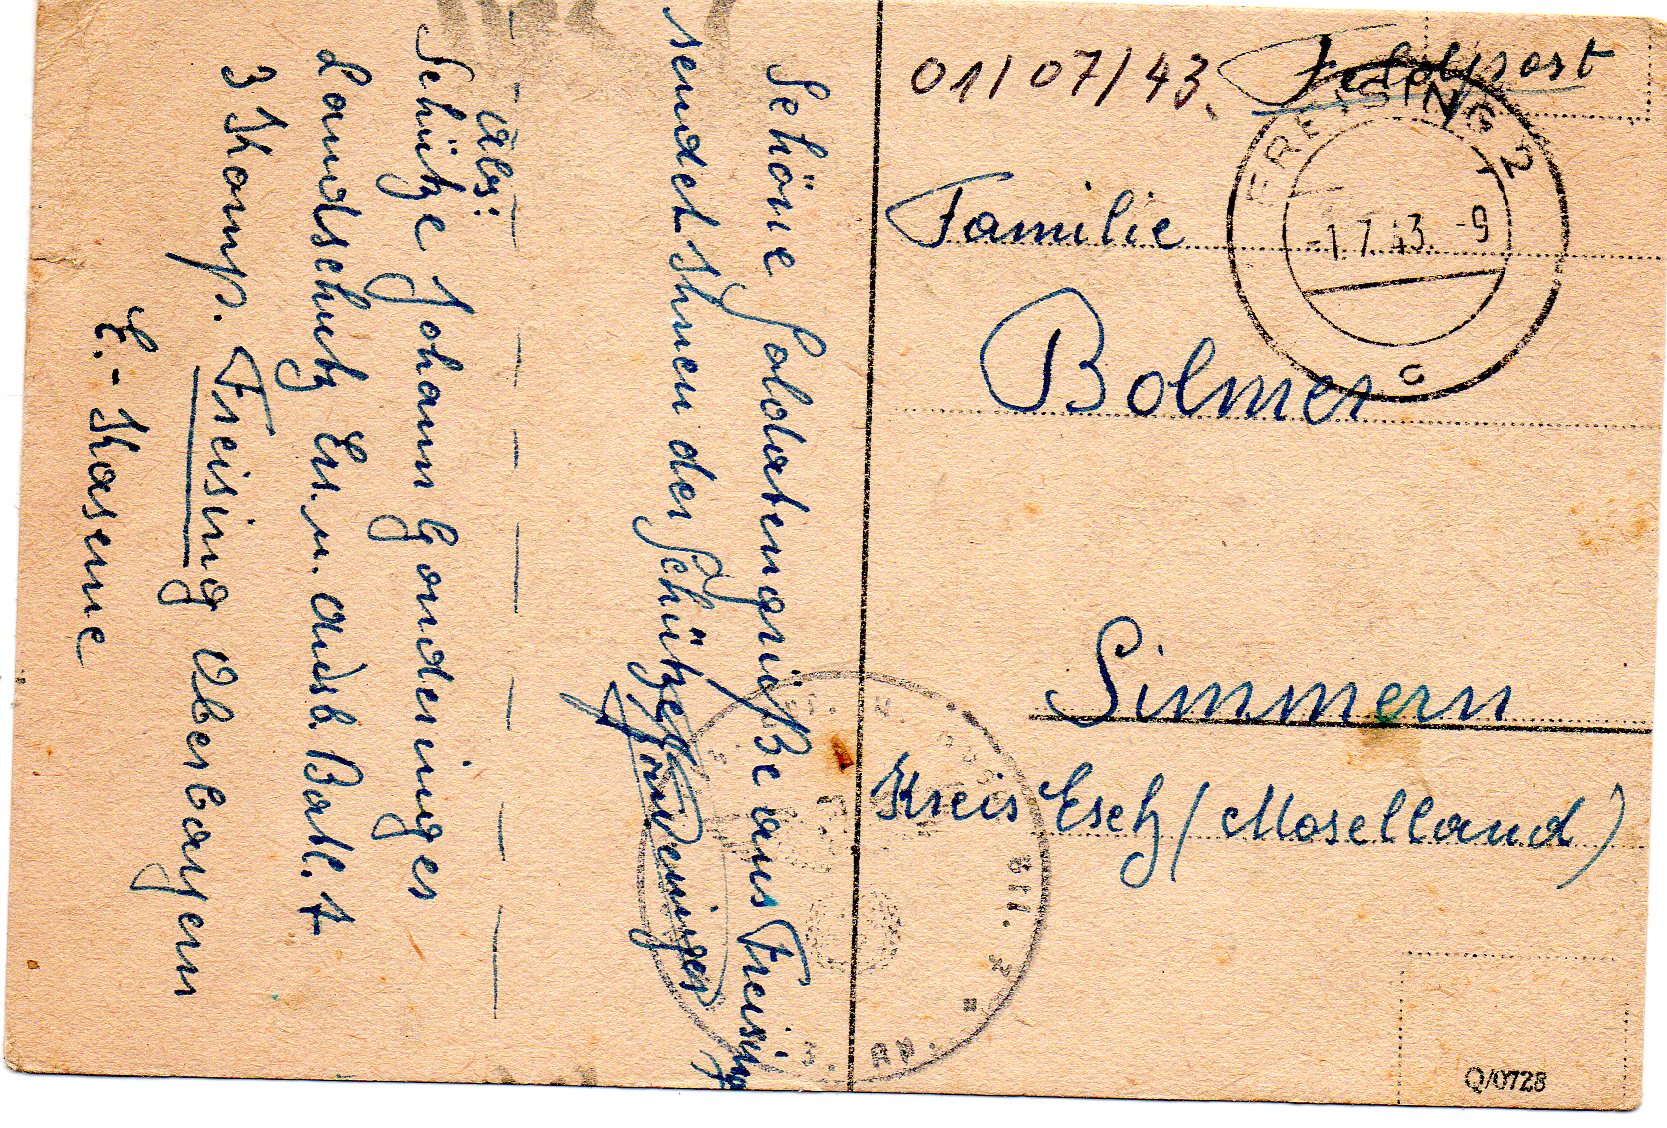 Schöne Soldatengrüße aus Freising
sendet Ihnen der Schütze
Gonderinger
Abs:
Schütze Johann Gonderinger
Landschutz Ers. u. Ausb. Batl. 7
3 Komp. Freising Oberbayern
E.-Kaserne
01/07/43.
Feldpost
FREISING 2
-1.7.43.-9
c
Familie
Bolmer
Simmern
Kreis Esch/(Moselland)
Q/0728